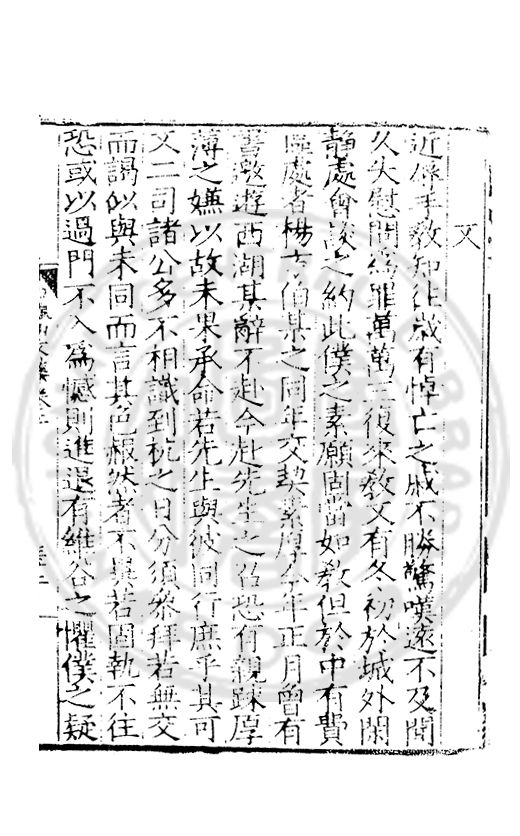 文
近得手教知往歲有悼亡之戚不勝驚嘆遠不及聞
久失慰問為罪萬萬三復來教又有冬初於城外閑
靜處會談之約此僕之素願固當如教但於中有費
區處者楊方伯某之同年交契素厚今年正月曾有
書邀遊西湖某辭不赴今赴先生之召恐有親踈厚
薄之嫌以故未果承命若先生與彼同行庶乎其可
又二司諸公多不相識到杭之日分須參拜若無交
而謁似與未同而言其色赧然者不異若固執不往
恐或以過門不入為憾則進退有維谷之懼僕之疑